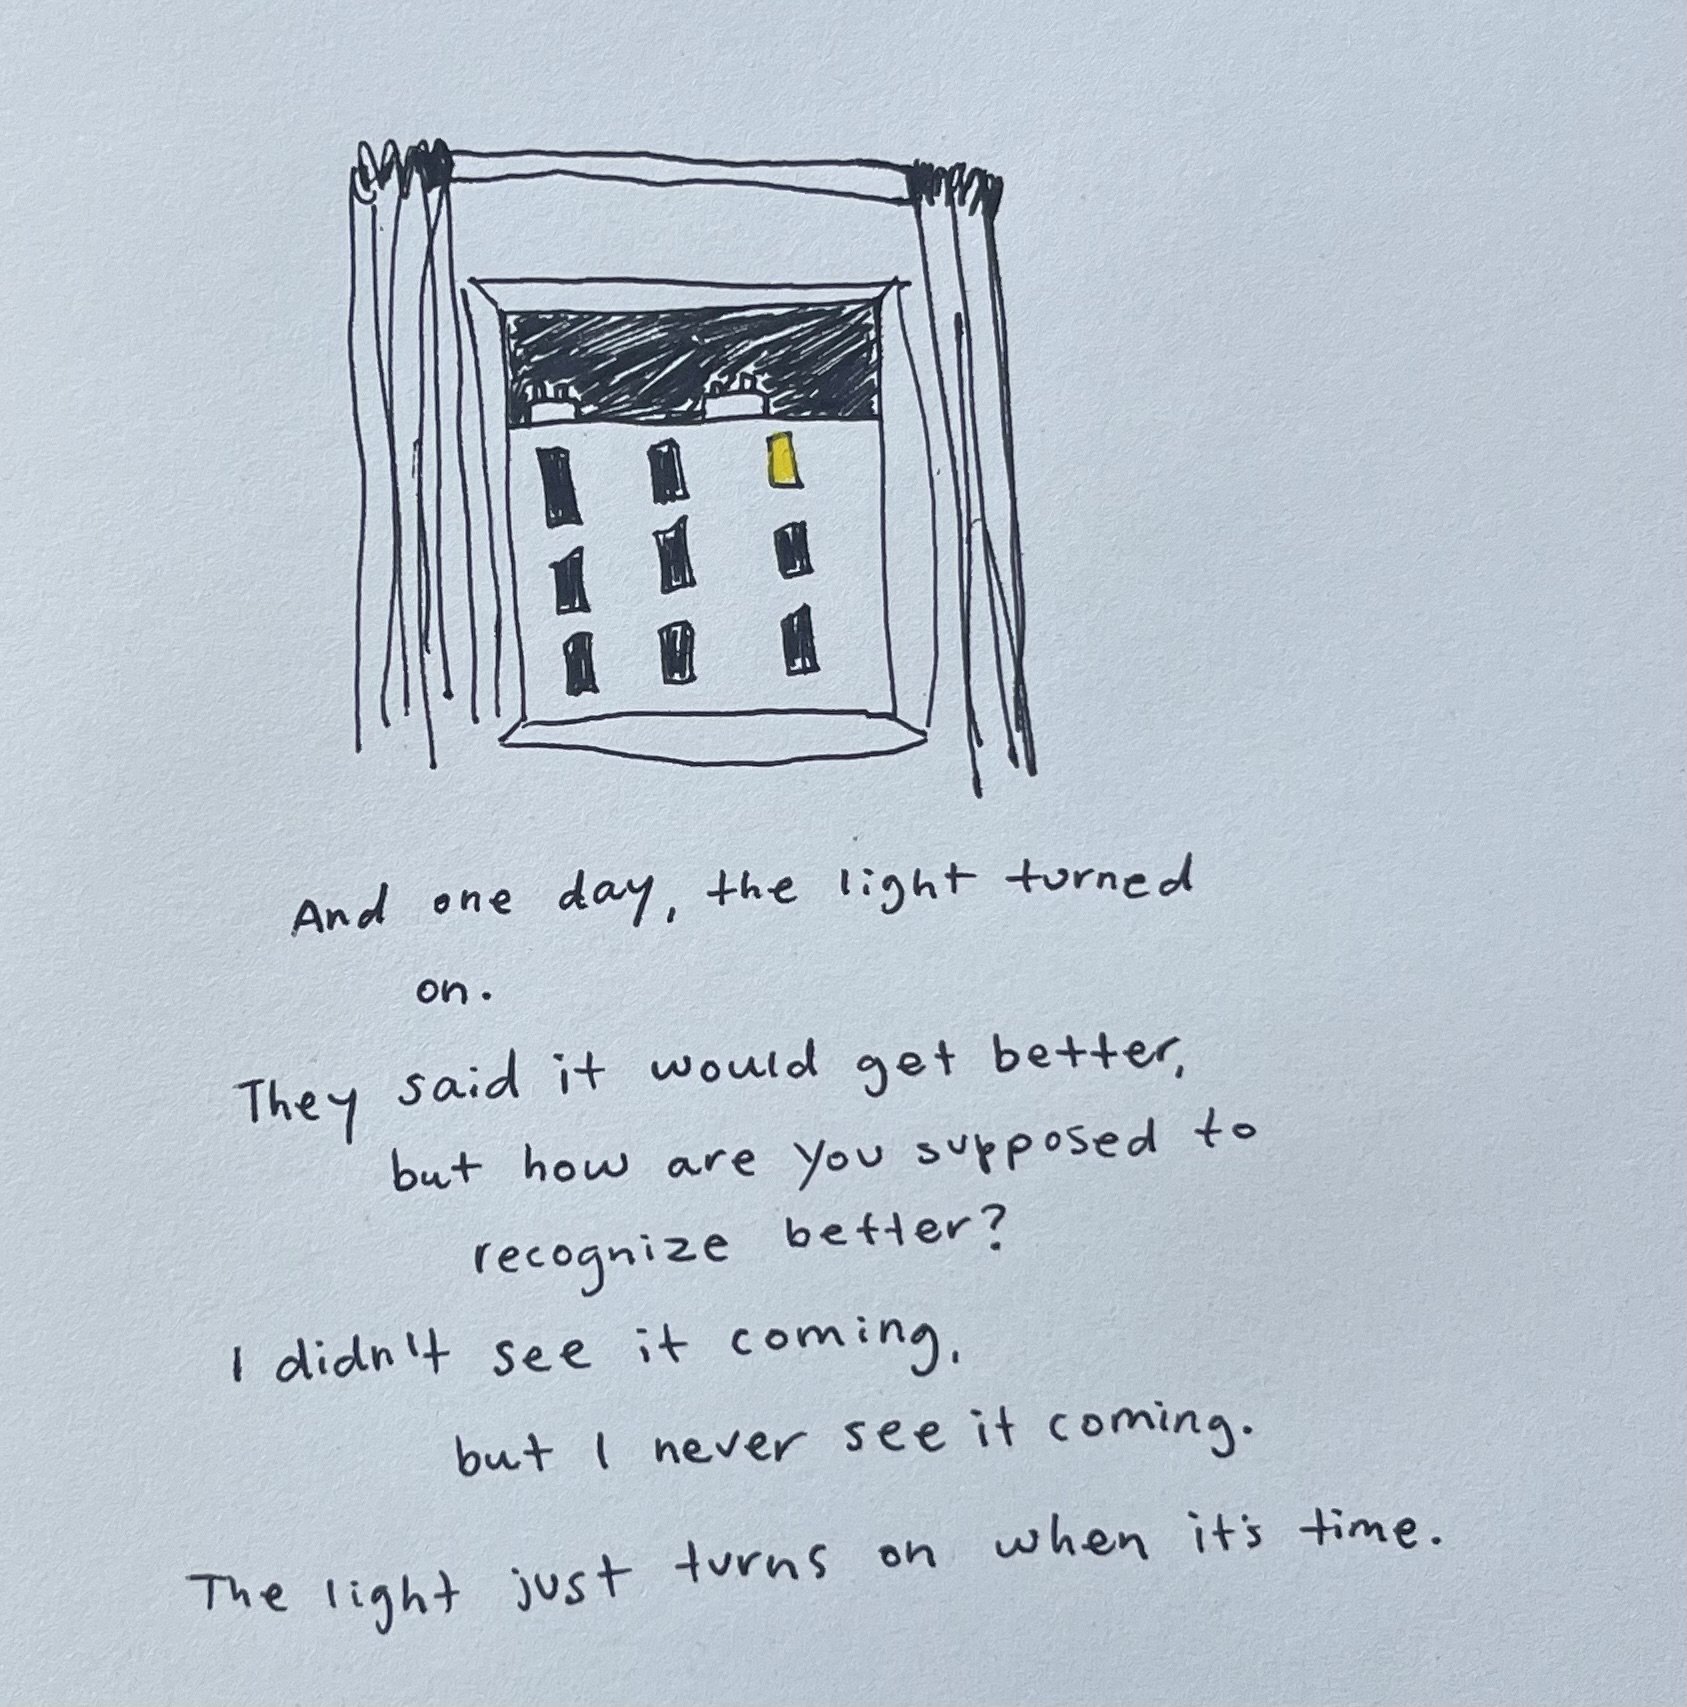 And one day, the light turned
on.
They said it would get better,
but how are you supposed to
recognize better?
I didn't see it coming,
but I never see it coming.
The light just turns on when it's time.